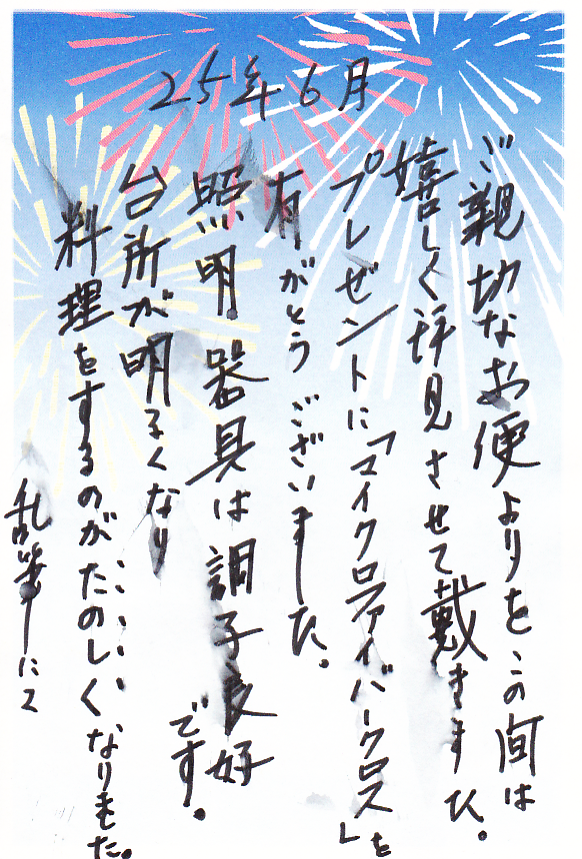 25年6月
ご親切なお便よりを、この間は
嬉しく拝見させて戴きました。
プレゼントに「マイクロファイバークロス」を
有がとうございました。
照明器具は調子良好
です。
台所が明るくなり
料理をするのがたのしくなりました。
乱筆にて